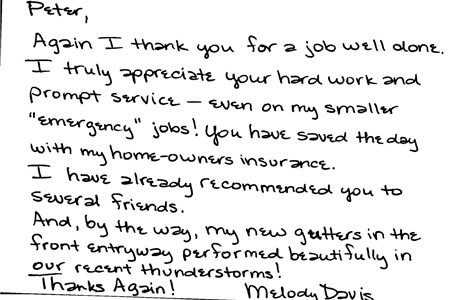 Peter,
Again I thank you for a job well done.
I truly appreciate your hard work and
prompt service — even on my smaller
"emergency" jobs! You have saved the day
with my home-owners insurance.
I have already recommended you to
several friends.
And, by the way, my new gutters in the
front entryway performed beautifully in
our recent thunderstorms!
Thanks Again!     Melody Davis